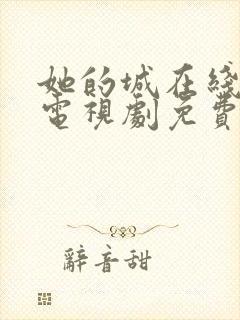 她的城在綫
電視劇免費
辭音甜